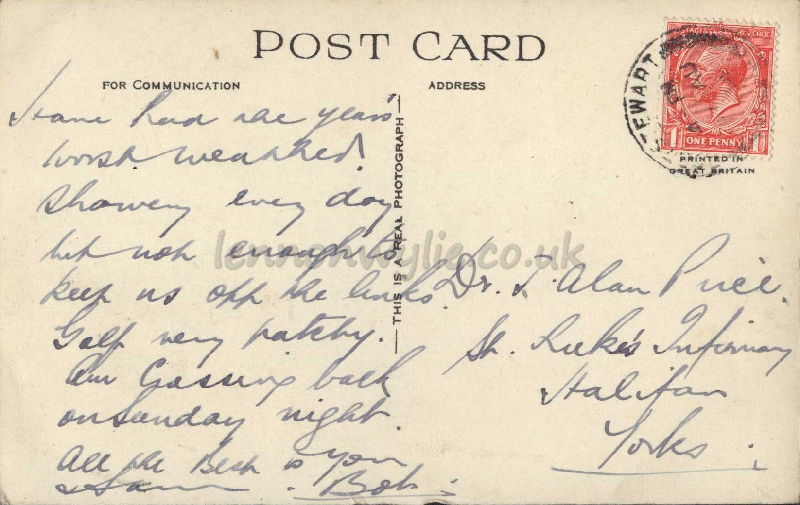 POST CARD
FOR COMMUNICATION
ADDRESS
Have had the year's
worst weather!
Showery every day
but not enough to
keep us off the links.
Golf very patchy.
Am Crossing back
on Sunday night.
All the Best to you
Bob
THIS IS A REAL PHOTOGRAPH
Dr. J. Alan Price.
St. Luke's Infirmary
Halifax
Yorks
EWART
POSTAGE REVENUE
1 ONE PENNY 1
PRINTED IN
GREAT BRITAIN
lennonwylie.co.uk